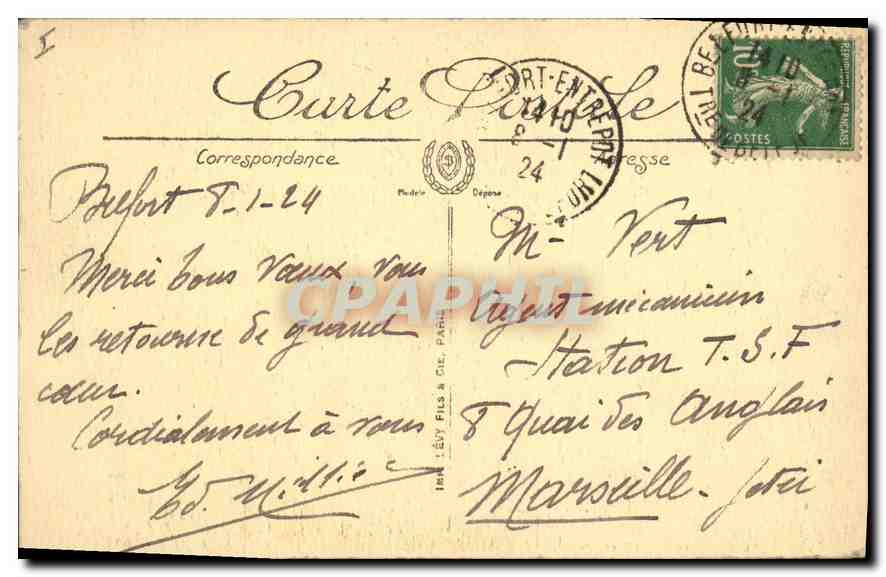 I
Carte Postale
Correspondance
Adresse
Modèle Déposé
FORT-ENTREPOT
14 10
8 -1
24
BELFORT
14 10
8 -1
24
10
REPUBLIQUE FRANÇAISE
POSTES
Belfort 8-1-24
Merci bons vœux, vous
les retourne de grand
cœur.
Cordialement à vous
Ed.
IMP. LÉVY FILS & CIE, PARIS
M- Vert
Agent-mécanicien
Station T.S.F
8 Quai des Anglais
Marseille-
CPAPHIL